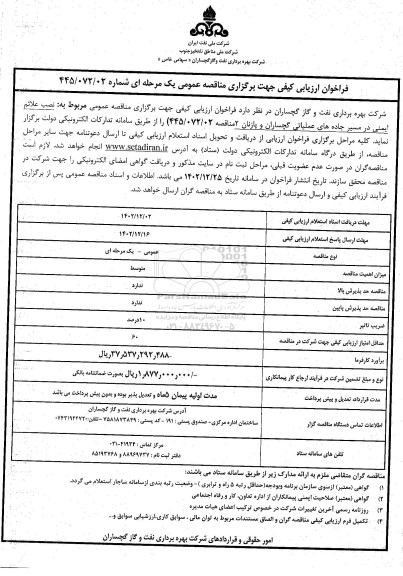 شرکت ملی نفت ایران
شرکت ملی مناطق نفتخیز جنوب
شرکت بهره برداری نفت و گاز گچساران «سهامی خاص»
فراخوان ارزیابی کیفی جهت برگزاری مناقصه عمومی یک مرحله ای شماره ۴۴۵/۰۷۳/۰۲
شرکت بهره برداری نفت و گاز گچساران در نظر دارد فراخوان ارزیابی کیفی جهت برگزاری مناقصه عمومی مربوط به: نصب علائم
ایمنی در مسیر جاده های عملیاتی گچساران و پازنان ۲ (مناقصه ۴۴۵/۰۷۳/۰۲) را از طریق سامانه تدارکات الکترونیکی دولت برگزار
نماید. کلیه مراحل برگزاری فراخوان ارزیابی از دریافت و تحویل اسناد استعلام ارزیابی کیفی تا ارسال دعوتنامه جهت سایر مراحل
مناقصه، از طریق درگاه سامانه تدارکات الکترونیکی دولت (ستاد) به آدرس www.setadiran.ir انجام خواهد شد. لازم است
مناقصه‌گران در صورت عدم عضویت قبلی، مراحل ثبت نام در سایت مذکور و دریافت گواهی امضای الکترونیکی را جهت شرکت در
مناقصه محقق سازند. تاریخ انتشار فراخوان در سامانه تاریخ می باشد. اطلاعات و اسناد مناقصه عمومی پس از برگزاری
فرآیند ارزیابی کیفی و ارسال دعوتنامه از طریق سامانه ستاد به مناقصه گران ارسال خواهد شد.
مهلت دریافت اسناد استعلام ارزیابی کیفی ۱۴۰۲/۱۲/۰۲
مهلت ارسال پاسخ استعلام ارزیابی کیفی ۱۴۰۲/۱۲/۱۶
نوع مناقصه عمومی - یک مرحله ای
میزان اهمیت مناقصه متوسط
مناقصه حد پذیرش بالا ندارد
مناقصه حد پذیرش پایین ندارد
ضریب تاثیر ۱۰درصد
حداقل امتیاز ارزیابی کیفی جهت شرکت در مناقصه ۶۰
برآورد کارفرما ۳۷٫۵۳۷٫۲۹۲٫۳۸۸ریال
نوع و مبلغ تضمین شرکت در فرآیند ارجاع کار پیمانکاری ۱٫۸۷۷٫۰۰۰٫۰۰۰/-ریال بصورت ضمانتنامه بانکی
مدت قرارداد، تعدیل و پیش پرداخت مدت اولیه پیمان ۵ماه و تعدیل پذیر بوده و بدون پیش پرداخت می باشد
اطلاعات تماس دستگاه مناقصه گزار آدرس شرکت بهره برداری نفت و گاز گچساران
ساختمان اداره مرکزی- صندوق پستی: ۱۹۱ - کد پستی:
تلفن های سامانه ستاد مرکز تماس: ۰۲۱-۴۱۹۳۴
دفتر ثبت نام: ۸۸۹۶۹۷۳۷ و ۸۵۱۹۳۷۶۸
مناقصه گران متقاضی ملزم به ارائه مدارک زیر از طریق سامانه ستاد می باشند:
۱) گواهی (معتبر) ازسوی سازمان برنامه وبودجه(حداقل رتبه ۵ راه و ترابری) – وضعیت رتبه بندی ازسامانه ساجار استعلام می گردد.
۲) گواهی (معتبر) صلاحیت ایمنی پیمانکاران از اداره تعاون، کار و رفاه اجتماعی
۳) روزنامه رسمی آخرین تغییرات شرکت در خصوص ترکیب اعضای هیات مدیره
۴) تکمیل فرم ارزیابی کیفی مناقصه گران و الصاق مستندات مربوط به توان مالی، سوابق کاری،ارزشیابی سوابق و...
امور حقوقی و قراردادهای شرکت بهره برداری نفت و گاز گچساران